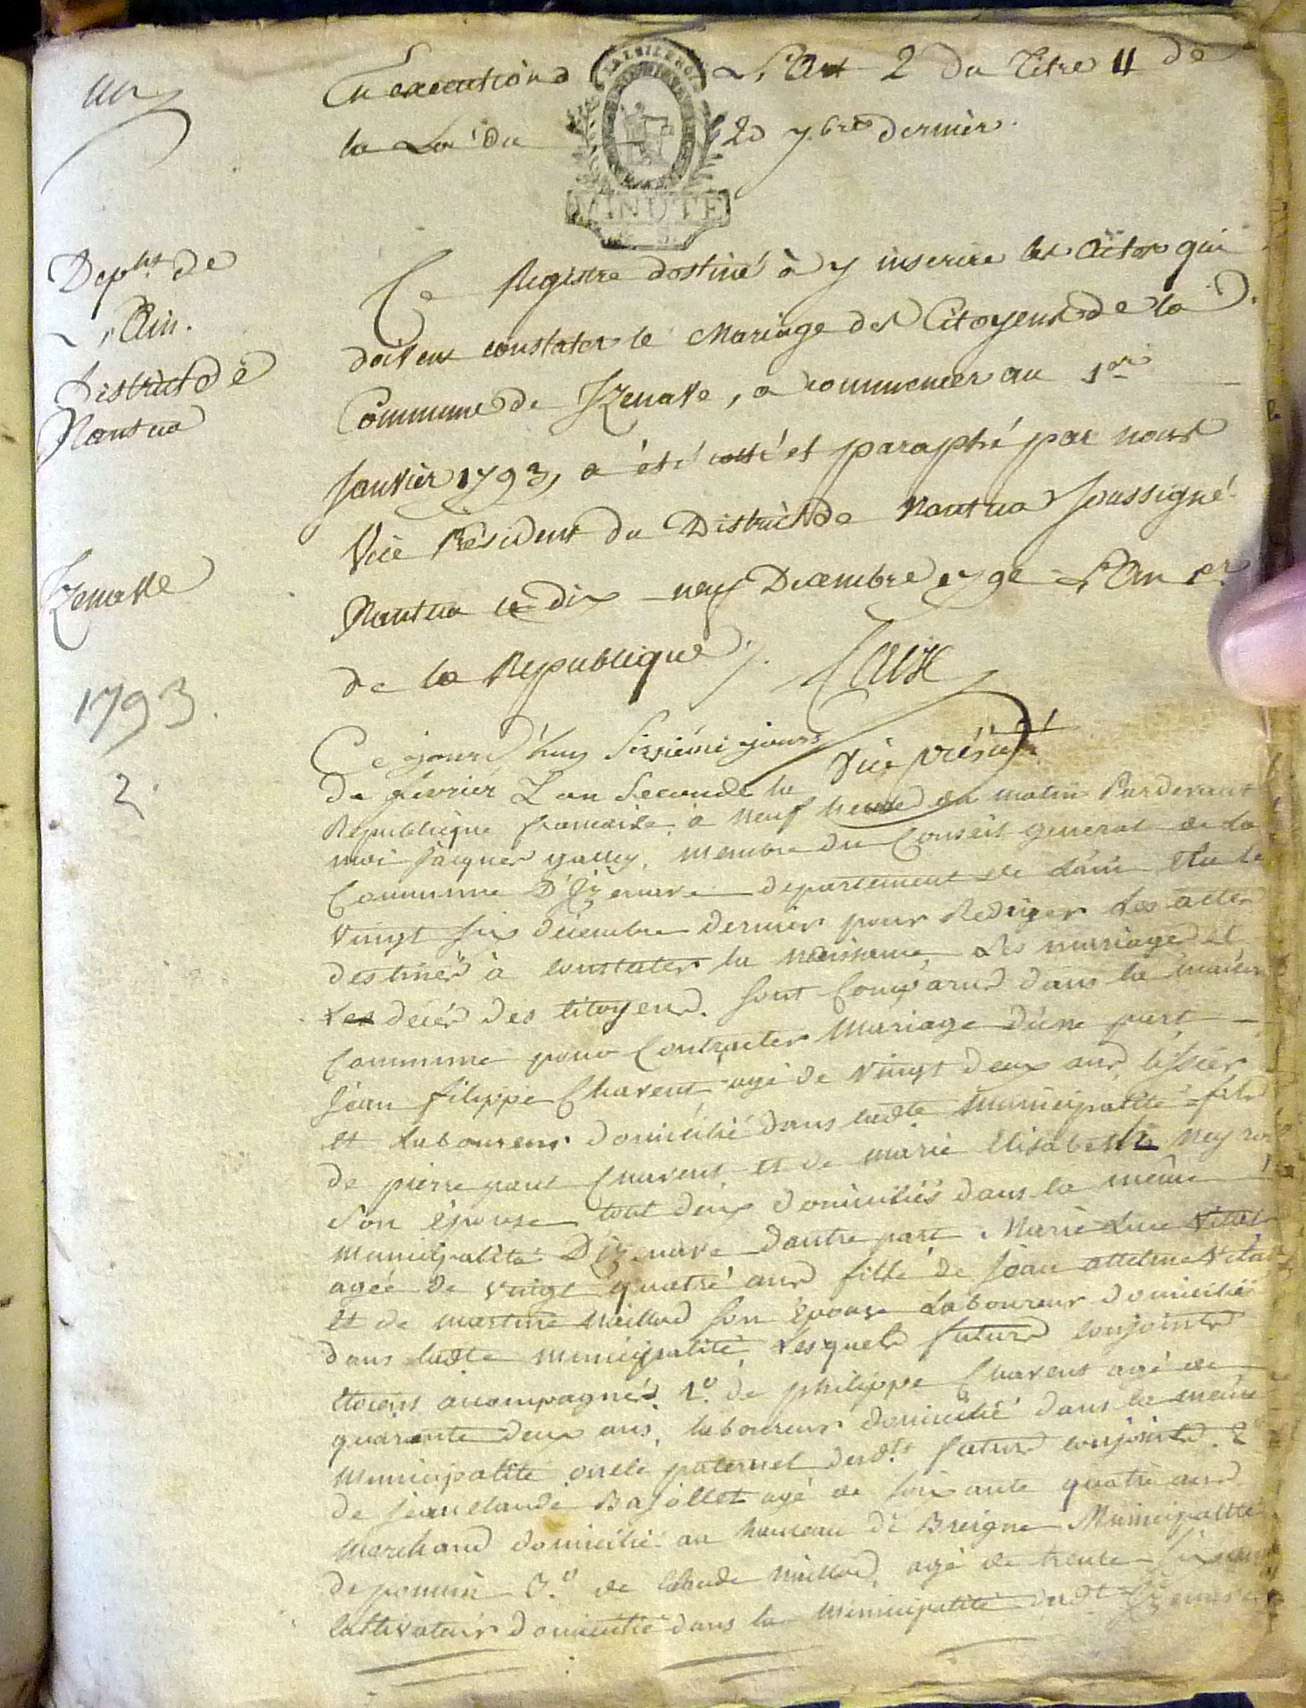 un
En execution de L'Art 2 du Titre 11 de
la Loi du 20 7bre dernier.
MINUTE
Depnt de
L'Ain.
District de
Nantua
Izenave
1793
2.
Ce Registre destiné à y inscrire les Actes qui
doivent constater le Mariage des Citoyens de la
Commune de Izenave, a commencer au 1er
Janvier 1793, a été cotté et paraphé par nous
Vice Président du District de Nantua soussigné
Nantua le dix neuf Decembre 1792 L'An 1er
de la Republique
Vice présidt
Ce jourd'huy sixieme jours
de fevrier L'an Second de la
Republique francaise, a neuf heures du matin Pardevant
moi jacques, membre du Conseil general de la
Commune D'Izenave departement de Lain elu le
vingt six decembre dernier pour Rediger Les actes
destinés à constater la naissance, Les mariages et
Les decés des citoyens. sont Comparus dans la maison
Commune pour Contracter Mariage d'une part
jean filippe Charvent agé de vingt deux ans, tissier
et Laboureur domicilié dans ladte municipalité fils
de pierre paul Charvent et de marie Elisabeth Neyron
son épouse tout deux domiciliés dans la même
municipalité D'Izenave dautre part Marie Luce
agée de vingt quatre ans fille de jean
et de martine Maillod son épouse Laboureur domiciliés
dans ladte municipalité, Lesquels futurs conjoints
étoient accompagnés 1.º de philippe Charvent agé de
quarante deux ans, laboureur domicilié dans la meme
municipalité oncle paternel dudt futurs conjoints, 2º
de jean claude Bajollet agé de soixante quatre ans
marchand domicilié au hameau de Breigne Municipalité
de 3.º de claude maillod, agé de trente six ans
cultivateur domicilié dans la municipalité dudt Izenave